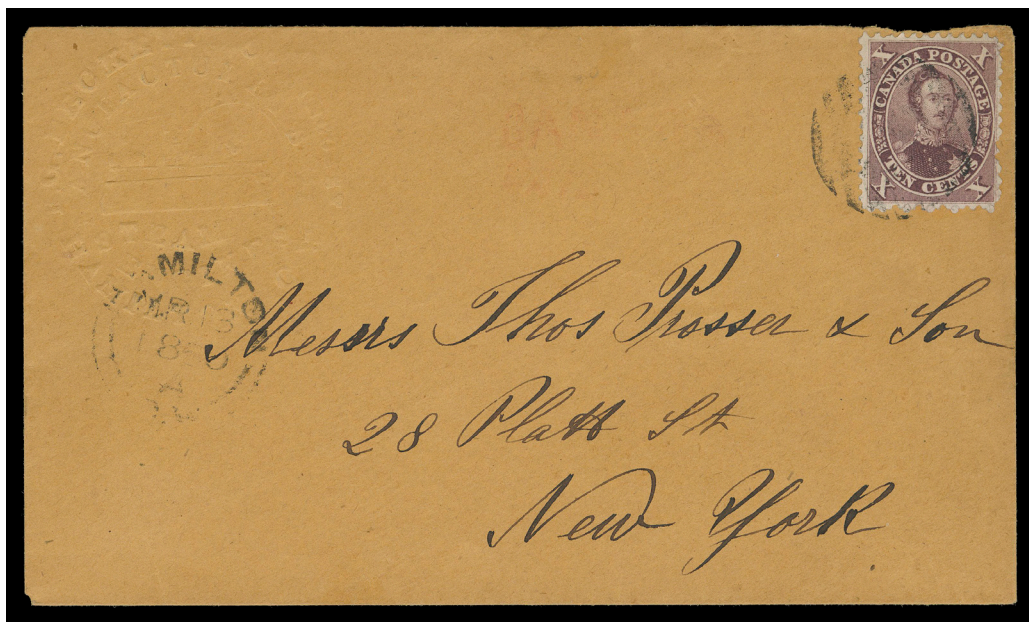 X X
CANADA POSTAGE
TEN CENTS
X X
MR 13
Messrs Thos Prosser & Son
28 Platt St
New York